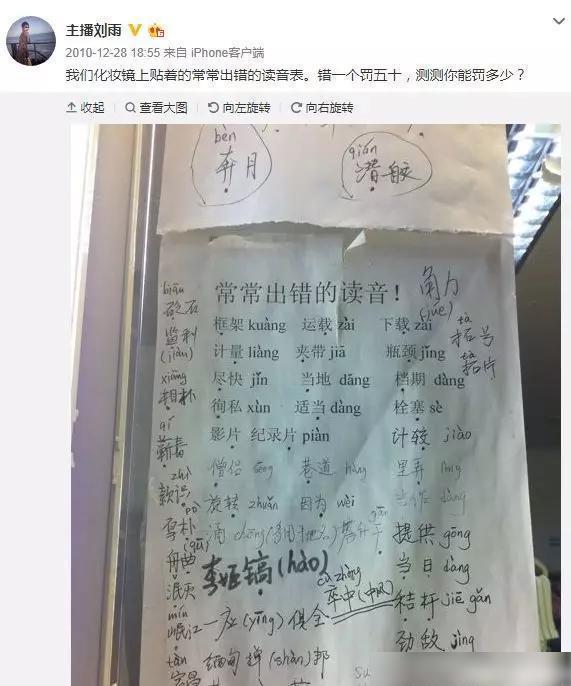 主播刘雨
2010-12-28 18:55 来自 iPhone客户端
我们化妆镜上贴着的常常出错的读音表。错一个罚五十，测测你能罚多少？
收起 查看大图 向左旋转 向右旋转
bèn
奔月
qián
潜艇
常常出错的读音！
角力
(jué)
框架 kuàng 运载 zài 下载 zài
计量 liàng 夹带 jiā 瓶颈 jǐng
尽快 jǐn 当地 dāng 档期 dàng
徇私 xùn 适当 dàng 栓塞 sè
影片 纪录片 piàn 计较 jiào
僧侣 sēng 巷道 hàng 里弄
旋转 zhuǎn 因为 wèi
涌 chōng 提供 gōng
李姬镐(hào) 当日 dàng
cù zhòng
卒中(中风)
秸杆 jiē gǎn
一应(yīng)俱全
劲敌 jìng
缅甸掸(shàn)邦
tà
拓号
tà
拓片
biān
砭石
监利
(jiàn)
xiàng
相扑
qí
蕲春
zhì
款识
pō
雪朴
(qū)
舟曲
泯灭
mín
岷江